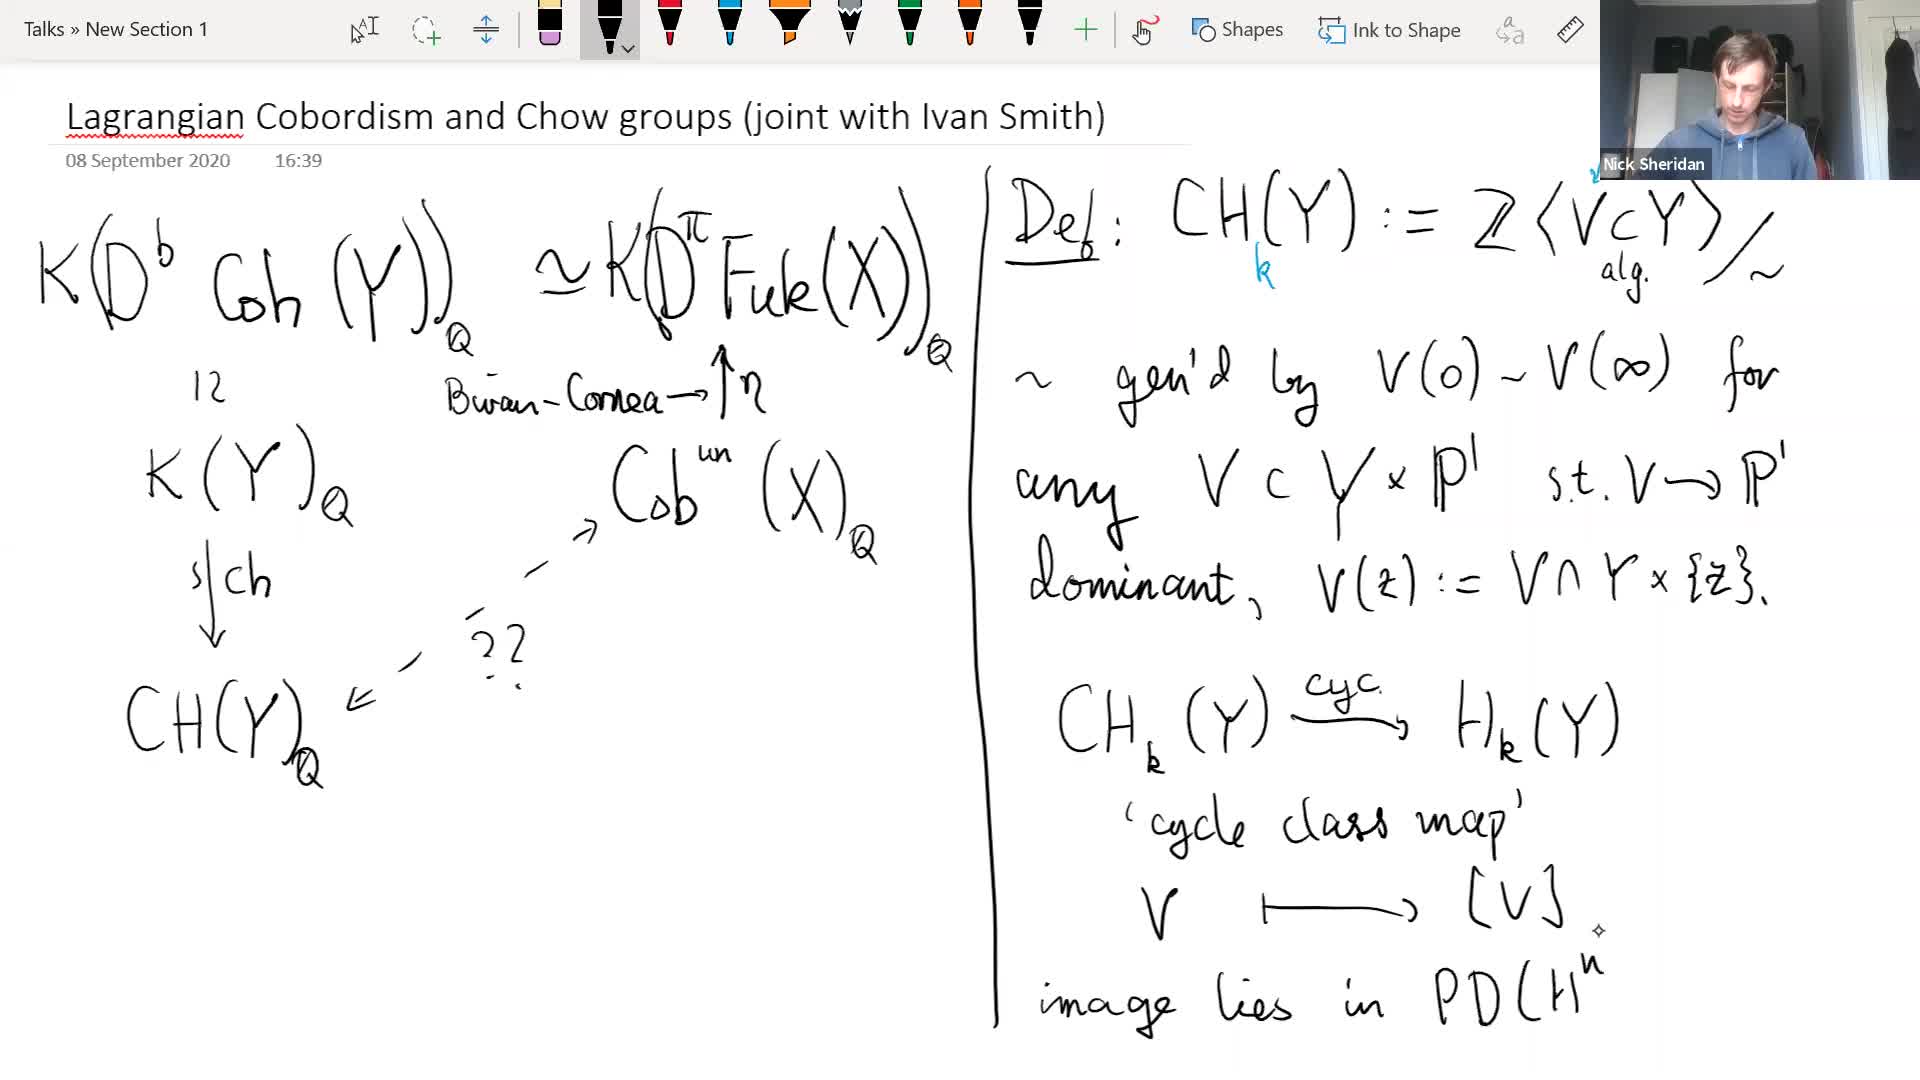 Talks » New Section 1
Shapes
Ink to Shape
Lagrangian Cobordism and Chow groups (joint with Ivan Smith)
08 September 2020 16:39
Nick Sheridan
K(D^b Coh (Y))_Q ≃ K(D^π Fuk(X))_Q
Biran-Cornea → ↑ η
K(Y)_Q
Cob^un (X)_Q
↓ ch
??
CH(Y)_Q
Def: CH_k(Y) := Z⟨V ⊂ Y⟩/~
alg.
~ gen'd by V(0) ~ V(∞) for
any V ⊂ Y × P^1 s.t. V → P^1
dominant, V(z) := V ∩ Y × {z}.
CH_k(Y) →^cyc. H_k(Y)
'cycle class map'
V ⟼ [V]
image lies in PD(H^n